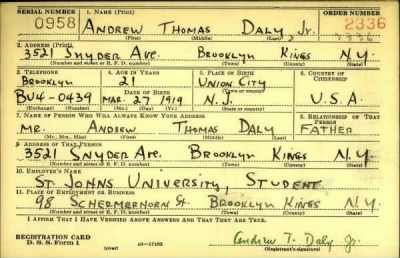 SERIAL NUMBER
1. NAME (Print)
ORDER NUMBER
0958
ANDREW THOMAS DALY, Jr.
2336
(First) (Middle) (Last)
2. ADDRESS (Print)
3521 SNYDER AVE. BROOKLYN KINGS N.Y.
(Number and street or R. F. D. number) (Town) (County) (State)
3. TELEPHONE
4. AGE IN YEARS
5. PLACE OF BIRTH
6. COUNTRY OF CITIZENSHIP
BROOKLYN
21
UNION CITY
DATE OF BIRTH
(Town or county)
BU4-0439
MAR. 27 1919
N.J.
U.S.A.
(Exchange) (Number)
(Mo.) (Day) (Yr.)
(State or country)
7. NAME OF PERSON WHO WILL ALWAYS KNOW YOUR ADDRESS
8. RELATIONSHIP OF THAT PERSON
MR. ANDREW THOMAS DALY
FATHER
(Mr., Mrs., Miss) (First) (Middle) (Last)
9. ADDRESS OF THAT PERSON
3521 SNYDER AVE. BROOKLYN KINGS N.Y.
(Number and street or R. F. D. number) (Town) (County) (State)
10. EMPLOYER'S NAME
ST. JOHNS UNIVERSITY, STUDENT
11. PLACE OF EMPLOYMENT OR BUSINESS
98 SCHERMERHORN St. BROOKLYN KINGS N.Y.
(Number and street or R. F. D. number) (Town) (County) (State)
I AFFIRM THAT I HAVE VERIFIED ABOVE ANSWERS AND THAT THEY ARE TRUE.
REGISTRATION CARD
D. S. S. Form 1
(over)
16-17105
Andrew T. Daly Jr.
(Registrant's signature)